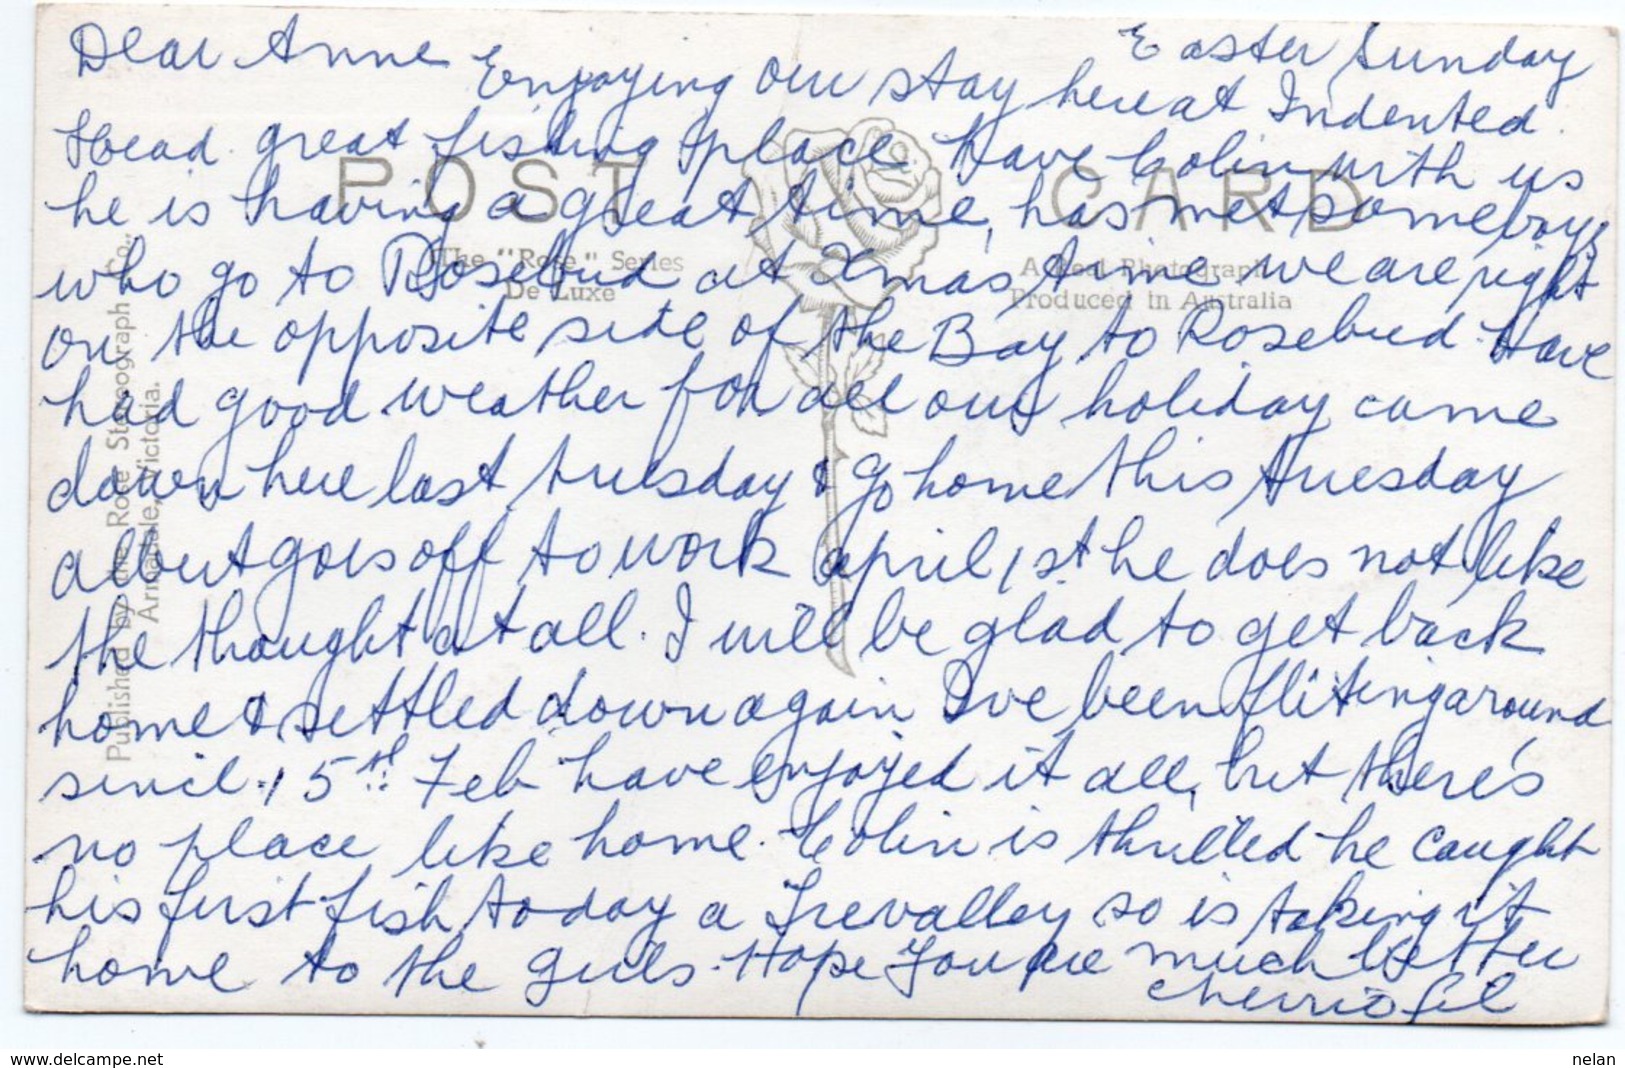 Easter Sunday
Dear Anne Enjoying our stay here at Indented
Head. great fishing place. Have Colin with us
he is having a great time, has met some boys
who go to Rosebud at Xmas time we are right
on the opposite side of the Bay to Rosebud. Have
had good weather for all our holiday came
down here last tuesday & go home this tuesday
albert goes off to work april 1st he does not like
the thought at all. I will be glad to get back
home & settled down again I've been fliting around
since 15th Feb have enjoyed it all, but there's
no place like home. Colin is thrilled he caught
his first fish today a Trevalley so is taking it
home to the girls. Hope you are much better
cherrio
POST CARD
The "Rose" Series
De Luxe
A Real Photograph
Produced in Australia
Published by the Rose Stereograph Co.,
Armadale, Victoria.
www.delcampe.net
nelan